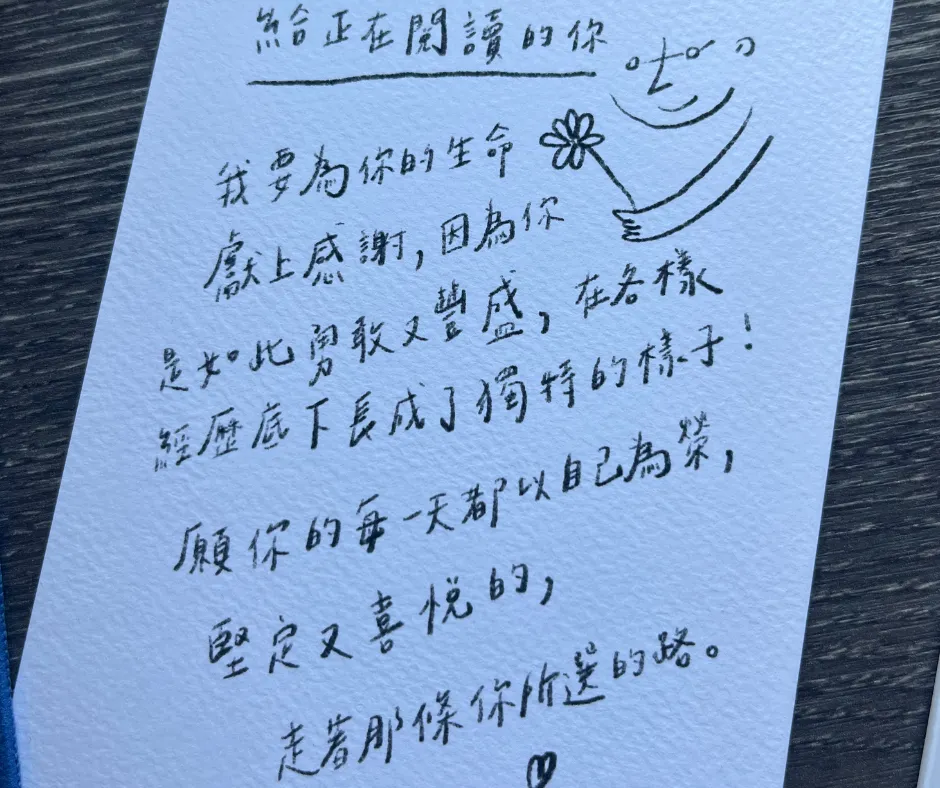 給正在閱讀的你
我要為你的生命
獻上感謝，因為你
是如此勇敢又豐盛，在各樣
經歷底下長成了獨特的樣子！
願你的每一天都以自己為榮，
堅定又喜悅的，
走著那條你所選的路。